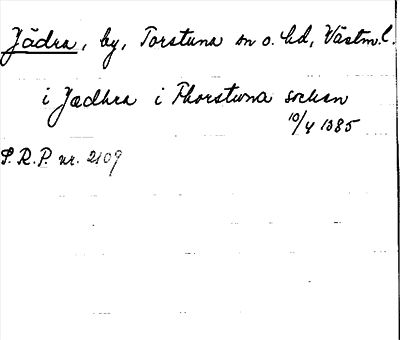 Jädra, by, Torstuna sn o. hd, Västm.l.
i Jædhra i Thorstuna sochn
10/4 1385
S.R.P. nr. 2109